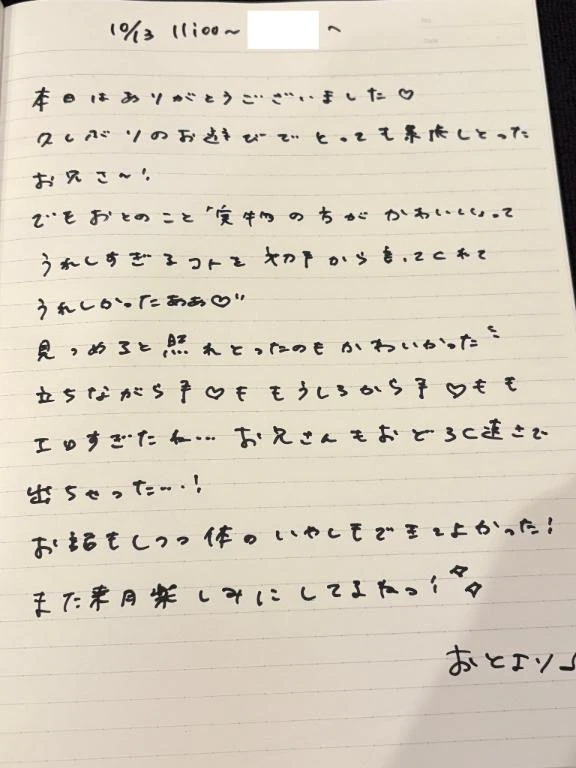 10/13 11:00〜 へ
本日はありがとうございました♡
久しぶりのお遊びでとっても緊張しとった
お兄さ〜ん!
でもおとのこと「実物の方がかわいい」って
うれしすぎるコトを 初手から言ってくれて
うれしかったぁぁ♡"
見つめると照れとったのもかわいかった
立ちながら手♡も もうしろから手♡もも
エロすぎたね… お兄さんもおどろく速さで
出ちゃった…!
お話もしつつ体のいやしもできてよかった!
また来月楽しみにしてるねっ!
おとエリ